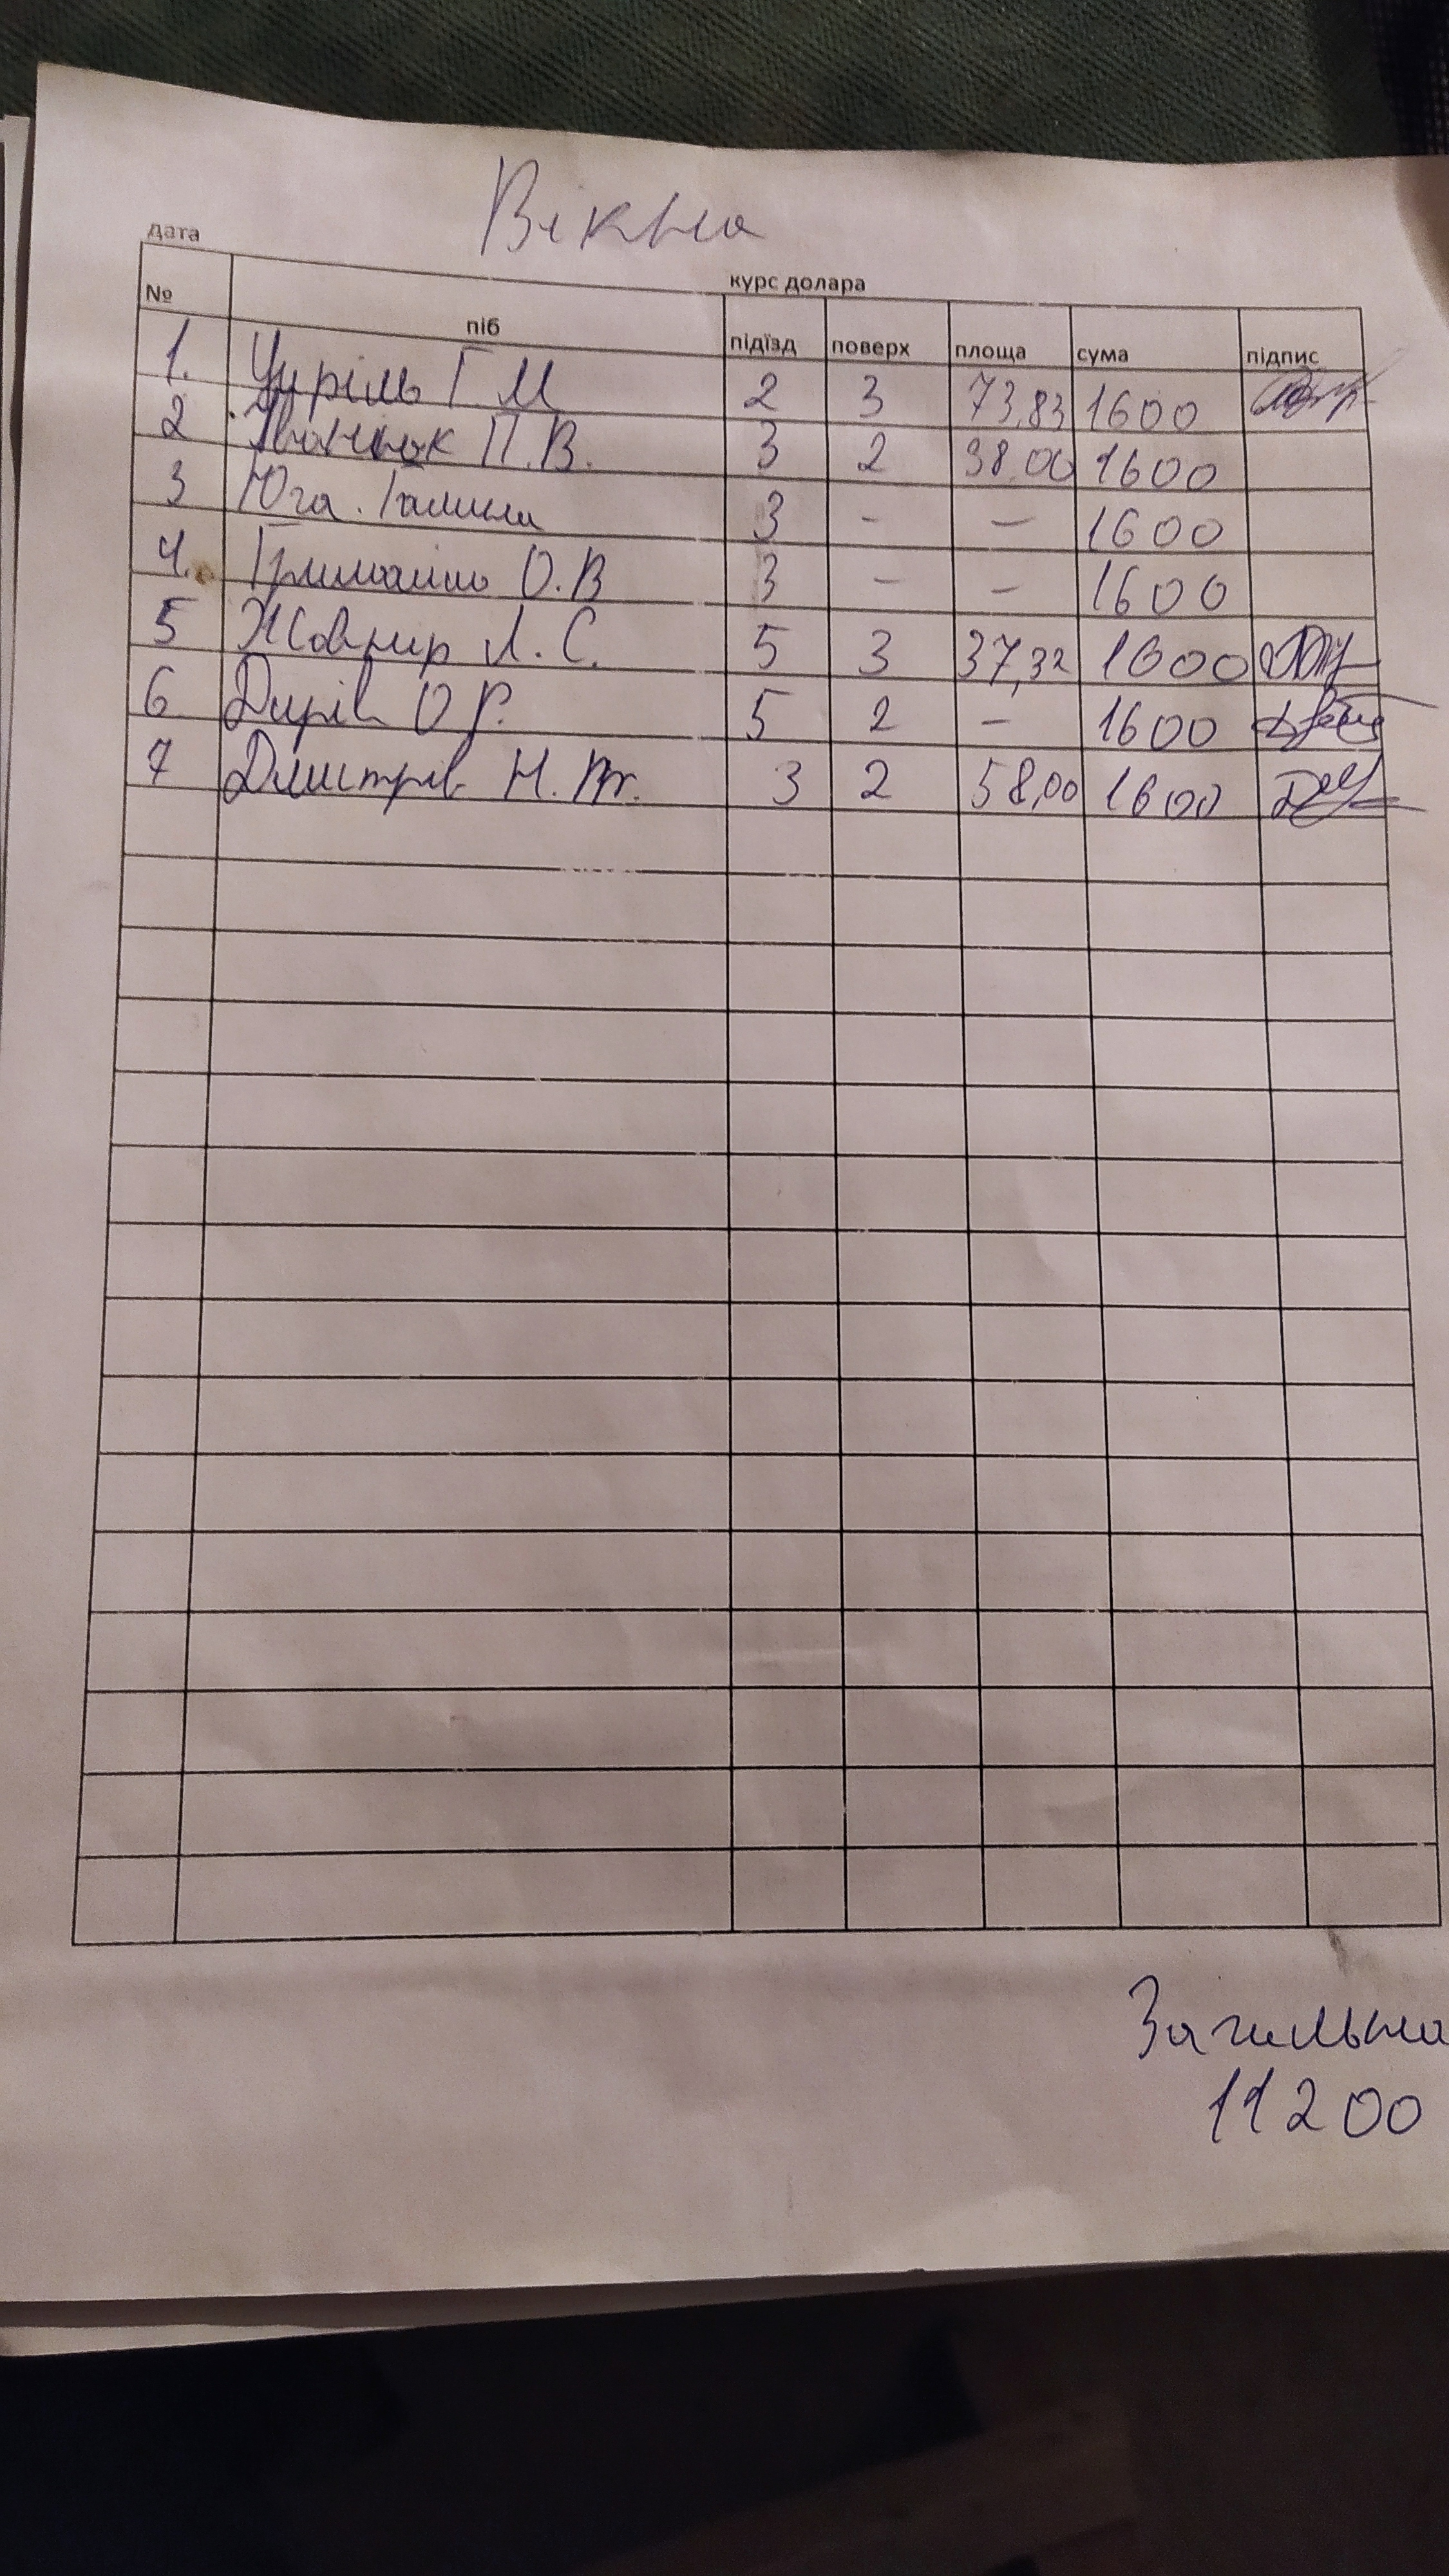 Вікна
дата
курс долара
№ піб підїзд поверх площа сума підпис
1. Цюріль Г М 2 3 73,83 1600
2. П.В. 3 2 38,00 1600
3 Юга. Галина 3 - - 1600
4. О.В 3 - - 1600
5 Жовнір Л. С. 5 3 37,32 1600
6 О Р. 5 2 - 1600
7 Дмитрів Н. М. 3 2 58,00 1600
Загальна
11200